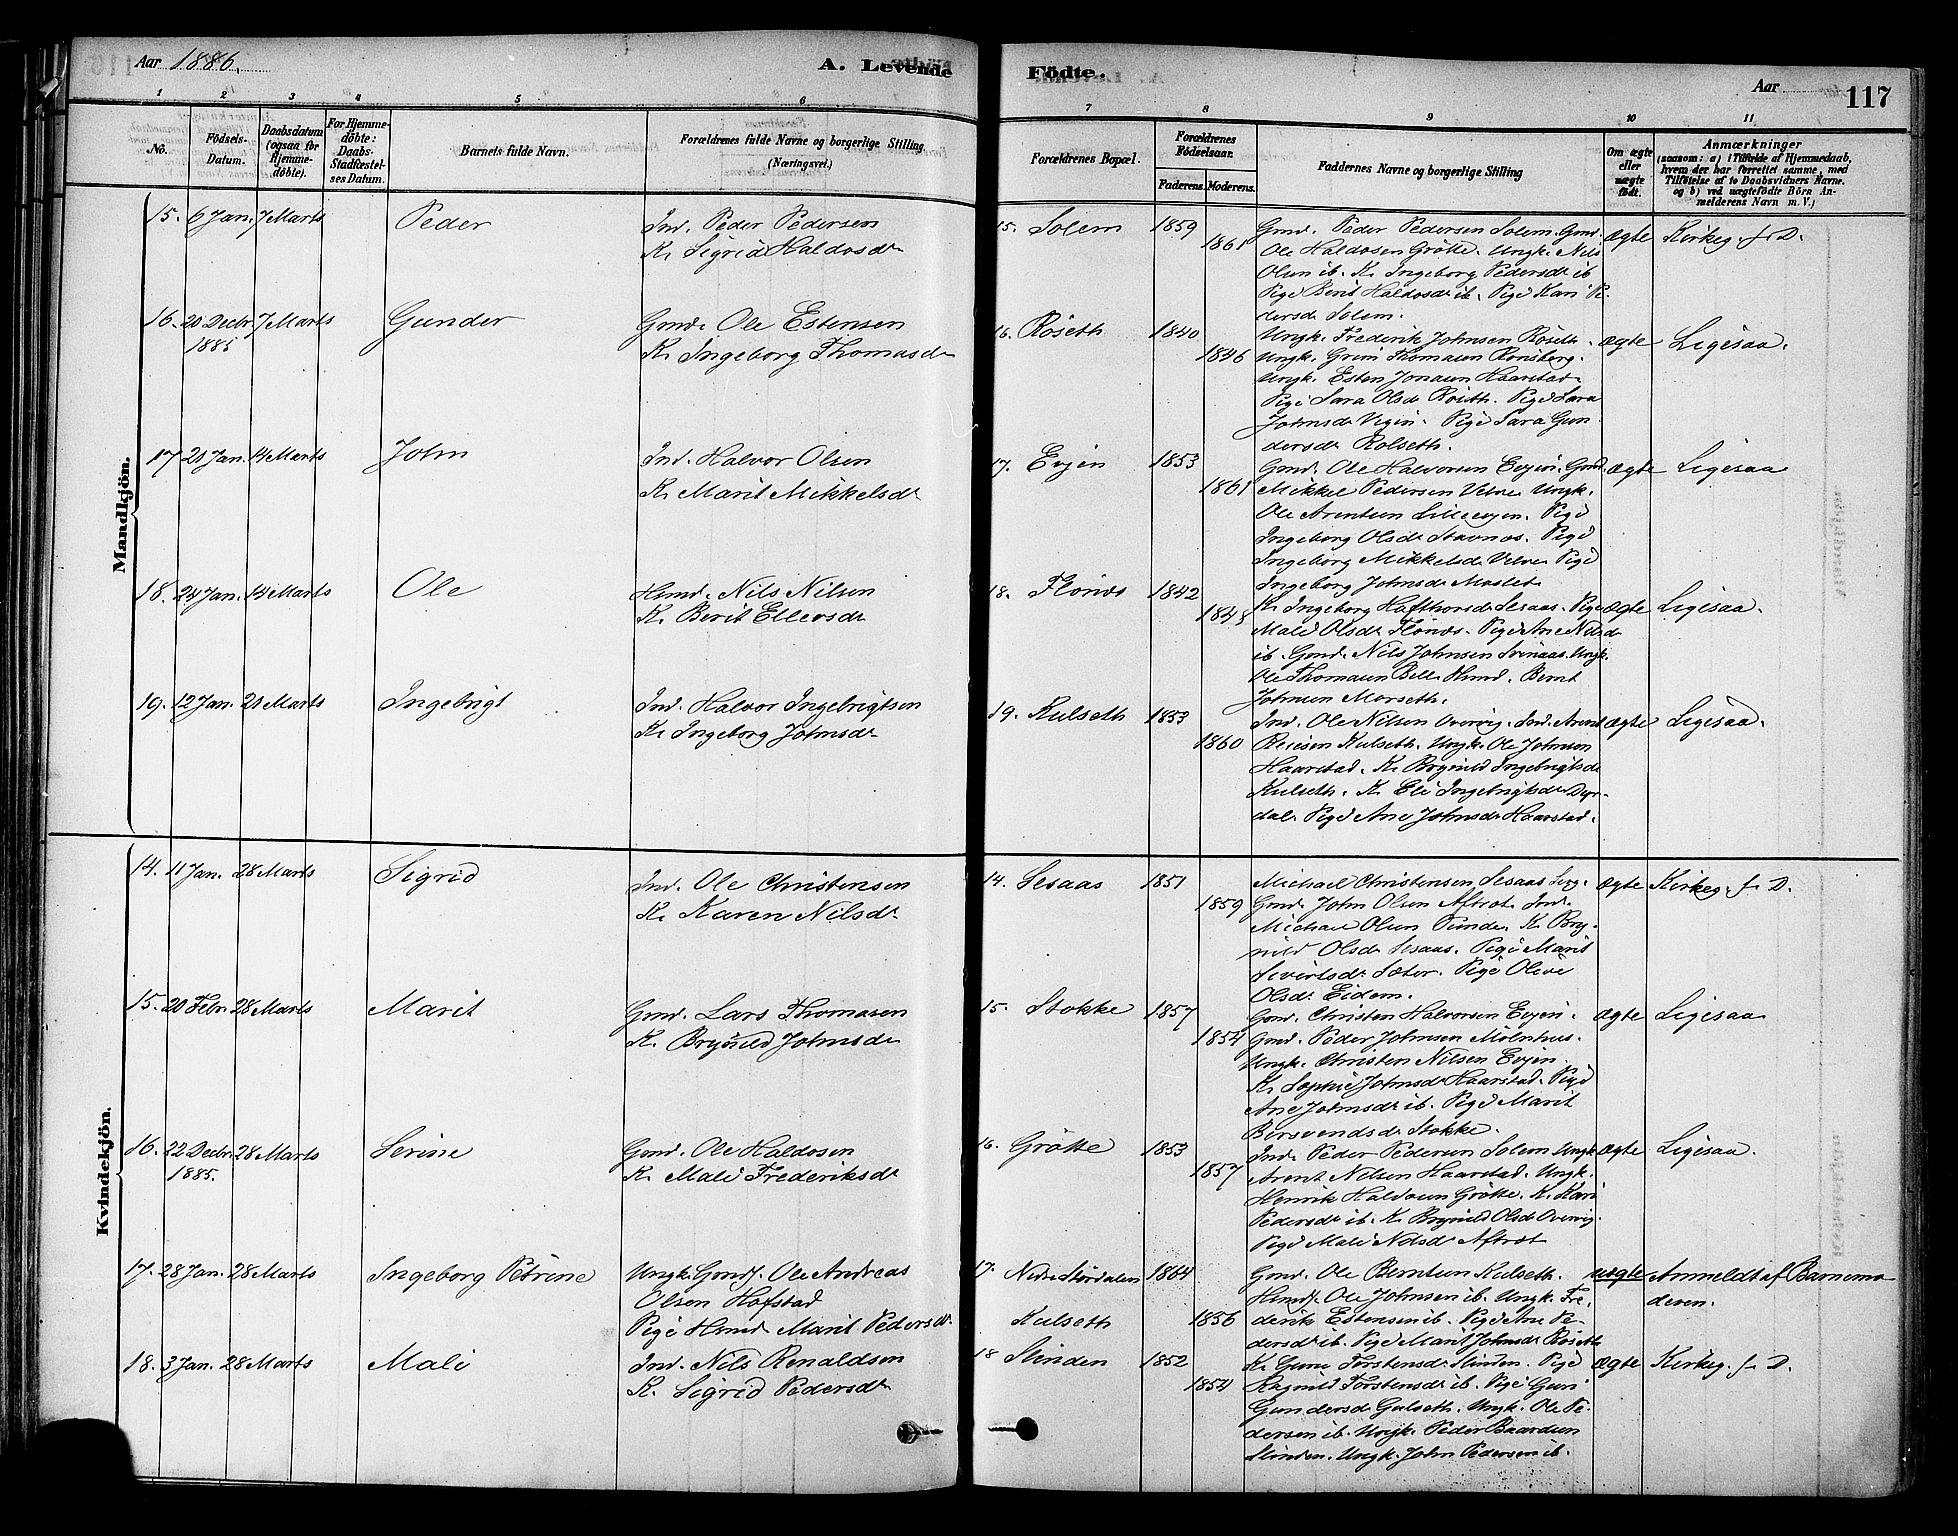 Aar 1886.
A. Levende
Födte.
Aar
117
1 2 3 4 5 6 7 8 9 10 11
No.
Födsels-Datum.
Daabsdatum (ogsaa for Hjemme-döbte).
For Hjemme-döbte: Daabs-Stadfæstel-ses Datum.
Barnets fulde Navn.
Forældrenes fulde Navne og borgerlige Stilling. (Næringsvei.)
Forældrenes Bopæl.
Forældrenes Födselsaar.
Faderens. Moderens.
Faddernes Navne og borgerlige Stilling
Om ægte eller uægte födt.
Anmærkninger
(saasom: a) i Tilfælde af Hjemmedaab,
hvem der har forrettet samme, med
Tilföielse af to Daabsvidners Navne.
og b) ved uægtefödte Börn An-
melderens Navn m. V.)
Mandkjön.
15. 6 Jan. 7 Marts Peder
Ind. Peder Pedersen
K. Sigrid Haldosdr
15. Solem 1859 1861
Gmd. Peder Pedersen Solem. Gmd.
Ole Haldosen Grötte. Ungk. Nils
Olsen ib. K. Ingeborg Pedersdr ib
Pige Berit Haldosdr ib. Pige Kari Pe-
dersdr Solem.
ægte Kirkeg. f. D.
16. 20 Decbr. 1885 7 Marts Gunder
Gmd. Ole Estensen
K. Ingeborg Thomasdr
16. Röseth 1840 1846
Ungk. Frederik Johnsen Röseth.
Ungk. Grim Thomasen Ronsberg.
Ungk. Esten Jonasen Haarstad.
Pige Sara Olsdr Röseth. Pige Sara
Johnsdr Vigen. Pige Sara Gun-
dersdr Rolseth.
ægte Ligesaa.
17 21 Jan. 14 Marts John
Ind. Halvor Olsen
K. Marit Mikkelsdr
17. Evjen 1853 1861
Gmd. Ole Halvorsen Evjen. Gmd.
Mikkel Pedersen Velve. Ungk.
Ole Arentsen Lilleevjen. Pige
Ingeborg Olsdr Stavnos. Pige
Ingeborg Mikkelsdr Velve. Pige
Ingeborg Johnsdr Moslet
ægte Ligesaa
18. 24 Jan. 14 Marts Ole
Hsmd. Nils Nilsen
K. Berit Ellevsdr
18. Flönes 1842 1845
K. Ingeborg Hafthorsdr Sesaas. Pige
Mali Olsdr Flönes. Pige Ane Nilsdr
ib. Gmd. Nils Johnsen Svenaas. Ungk.
Ole Thomasen Bell. Hsmd. Bernt
Johnsen Morseth.
ægte Ligesaa.
19. 12 Jan. 21 Marts Ingebrigt
Ind. Halvor Ingebrigtsen
K. Ingeborg Johnsdr
19. Kulseth 1853 1860
Ind. Ole Nilsen Overvig. Ind. Arent
Kulseth. Ungk. Ole Johnsen
Haarstad. K. Brynild Ingebrigtsdr
Kulseth. K. Eli Ingebrigtsdr Dyr-
dal. Pige Ane Johnsdr Haarstad.
ægte Ligesaa.
Kvindekjön.
14. 11 Jan. 28 Marts Sigrid
Ind. Ole Christensen
K. Karen Nilsdr
14. Sesaas 1851 1859
Michael Christensen Sesaas
Gmd. John Olsen Aftret. Ind.
Michael Olsen Tunde. K. Bry-
nild Olsdr Sesaas. Pige Marit
Sivertsdr Sæter. Pige Olive
Olsdr Eidem.
ægte Kirkeg. f. D.
15. 20 Febr. 28 Marts Marit
Gmd. Lars Thomasen
K. Brynild Johnsdr
15. Stokke 1857 1854
Gmd. Christen Halvorsen Evjen.
Gmd. Peder Johnsen Mölnhus.
Ungk. Christen Nilsen Evjen.
K. Sophie Johnsdr Haarstad. Pige
Ane Johnsdr ib. Pige Marit
Bersvendsdr Stokke.
ægte Ligesaa
16. 22 Decbr. 1885. 28 Marts Serine
Gmd. Ole Haldosen
K. Mali Frederiksdr
16. Grötte 1853 1857
Ind. Peder Pedersen Solem. Ungk.
Arent Nilsen Haarstad. Ungk.
Henrik Haldosen Grötte. K. Kari
Pedersdr ib. K. Brynild Olsdr Overvig.
Pige Mali Nilsdr Aftret
ægte Ligesaa.
17. 28 Jan. 28 Marts Ingeborg Petrine
Ungk. Gmdf. Ole Andreas
Olsen Hofstad
Pige Hsmd Marit Pedersdr.
17. Nedre Stördalen 1864
Kulseth 1856
Gmd. Ole Berntsen Kulseth.
Hsmdf. Ole Johnsen ib. Ungk. Fre-
derik Estensen ib. Pige Ane Pe-
dersdr ib. Pige Marit Johnsdr Röseth
uægte Anmeldt af Barnemo
deren.
18. 3 Jan. 28 Marts Mali
Ind. Nils Renaldsen
K. Sigrid Pedersdr
18 Slinden 1852 1854
K. Guru Torstensdr Slinden. Pige
Ragnild Torstensdr ib. Pige Guri
Gundersdr Gulseth. Ungk. Ole Pe-
dersen ib. Ungk. Peder Baardsen
Slinden. Ungk. John Pedersen ib.
ægte Kirkeg. f. D.